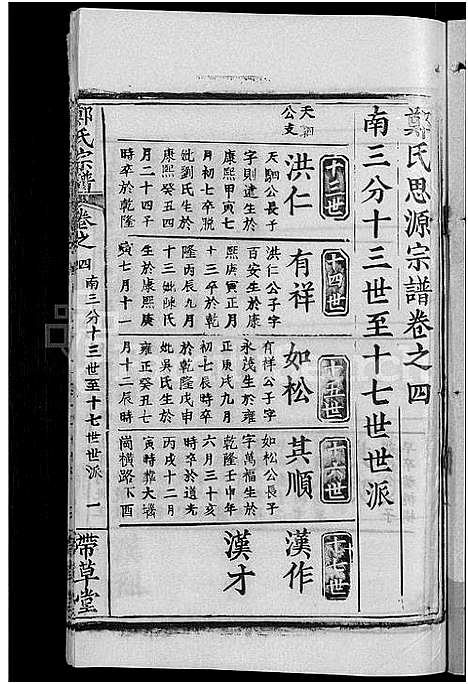 鄭氏思源宗譜卷之四
南三分十三世至十七世世派
十三世
天駟公支
洪仁
天駟公長子
字則違生於
康熙甲寅七
月初七卒脫
妣劉氏生於
康熙癸丑四
月二十四子
時卒於乾隆
十四世
有祥
洪仁公子字
百安生於康
熙庚寅正月
十三卒於乾
隆丙辰九月
十三妣陳氏
生於康熙庚
寅七月十一
十五世
如松
有祥公子字
永茂生於雍
正庚戌九月
初七辰時卒
於乾隆戊申
妣吳氏生於
雍正癸丑七
月十二辰時
十六世
其順
如松公長子
字萬福生於
乾隆壬申年
六月三十亥
時卒於道光
丙戌十二月
寅時葬大塘
崗橫路下酉
十七世
漢作
漢才
鄭氏宗譜
卷之四
南三分十三世至十七世世派
一
帶草堂